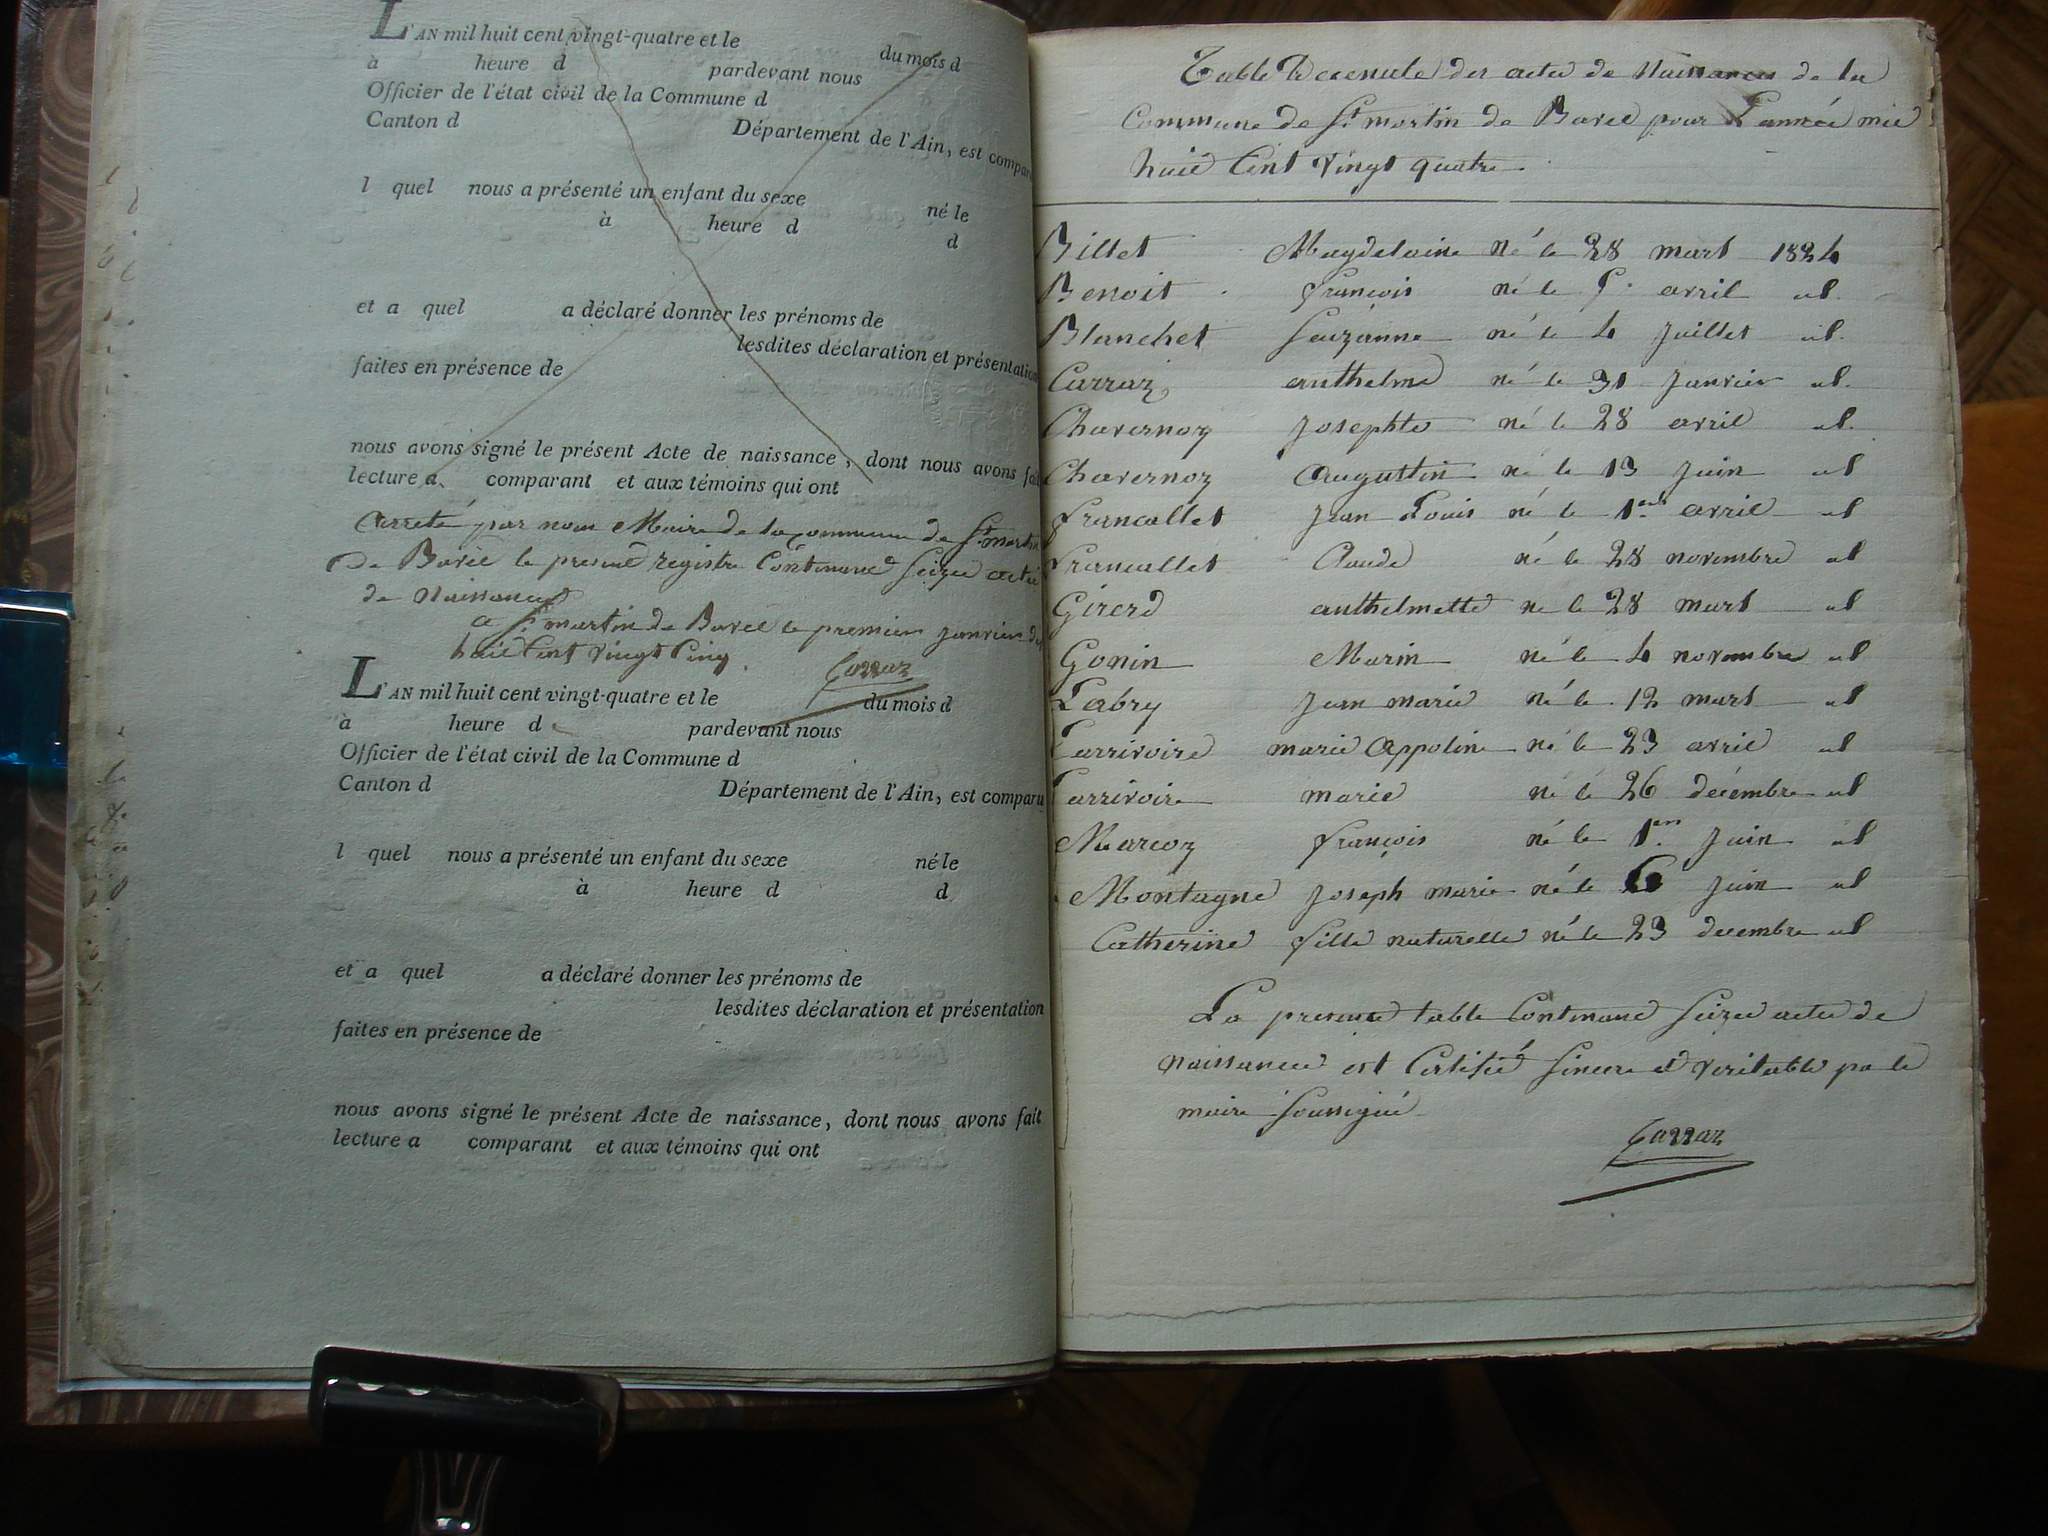 L'AN mil huit cent vingt-quatre et le du mois d
à heure d pardevant nous
Officier de l'état civil de la Commune d
Canton d Département de l'Ain, est compar
l quel nous a présenté un enfant du sexe né le
à heure d d
et a quel a déclaré donner les prénoms de
lesdites déclaration et présentation
faites en présence de
nous avons signé le présent Acte de naissance, dont nous avons fait
lecture a comparant et aux témoins qui ont
arreté par nous Maire de la commune de St martin
De Bavel le present registre Contenant Seize actes
de Naissances
a St martin de Bavel le premier janvier
huit Cent Vingt Cinq.
Carraz
L'AN mil huit cent vingt-quatre et le du mois d
à heure d pardevant nous
Officier de l'état civil de la Commune d
Canton d Département de l'Ain, est comparu
l quel nous a présenté un enfant du sexe né le
à heure d d
et a quel a déclaré donner les prénoms de
lesdites déclaration et présentation
faites en présence de
nous avons signé le présent Acte de naissance, dont nous avons fait
lecture a comparant et aux témoins qui ont
Table des actes de Naissances de la
Commune de St martin de Bavel pour L'année mil
huit Cent Vingt quatre.
Billet Magdelaine né le 28 mars 1824
Benoit françois né le avril id.
Blanchet Suzanne né le 4 Juillet id.
Carraz anthelme né le 31 Janvier id.
Chavernoz Josephte né le 28 avril id.
Chavernoz Augustin né le 13 Juin id
francallet Jean Louis né le 1er avril id
francallet Claude né le 28 novembre id
Girerd anthelmette né le 28 mars id
Gonin Marin né le 4 novembre id
Labry Jean marie né le 12 mars id
Larrivoire marie Appoline né le 23 avril id
Larrivoire marie né le 26 décembre id
Marcoz françois né le 1er Juin id
Montagne Joseph marie né le 6 Juin id
Catherine fille naturelle né le 23 decembre id
La presente table Contenant Seize actes de
naissances est Certifié Sincere et veritable pa le
maire Soussigné
Carraz